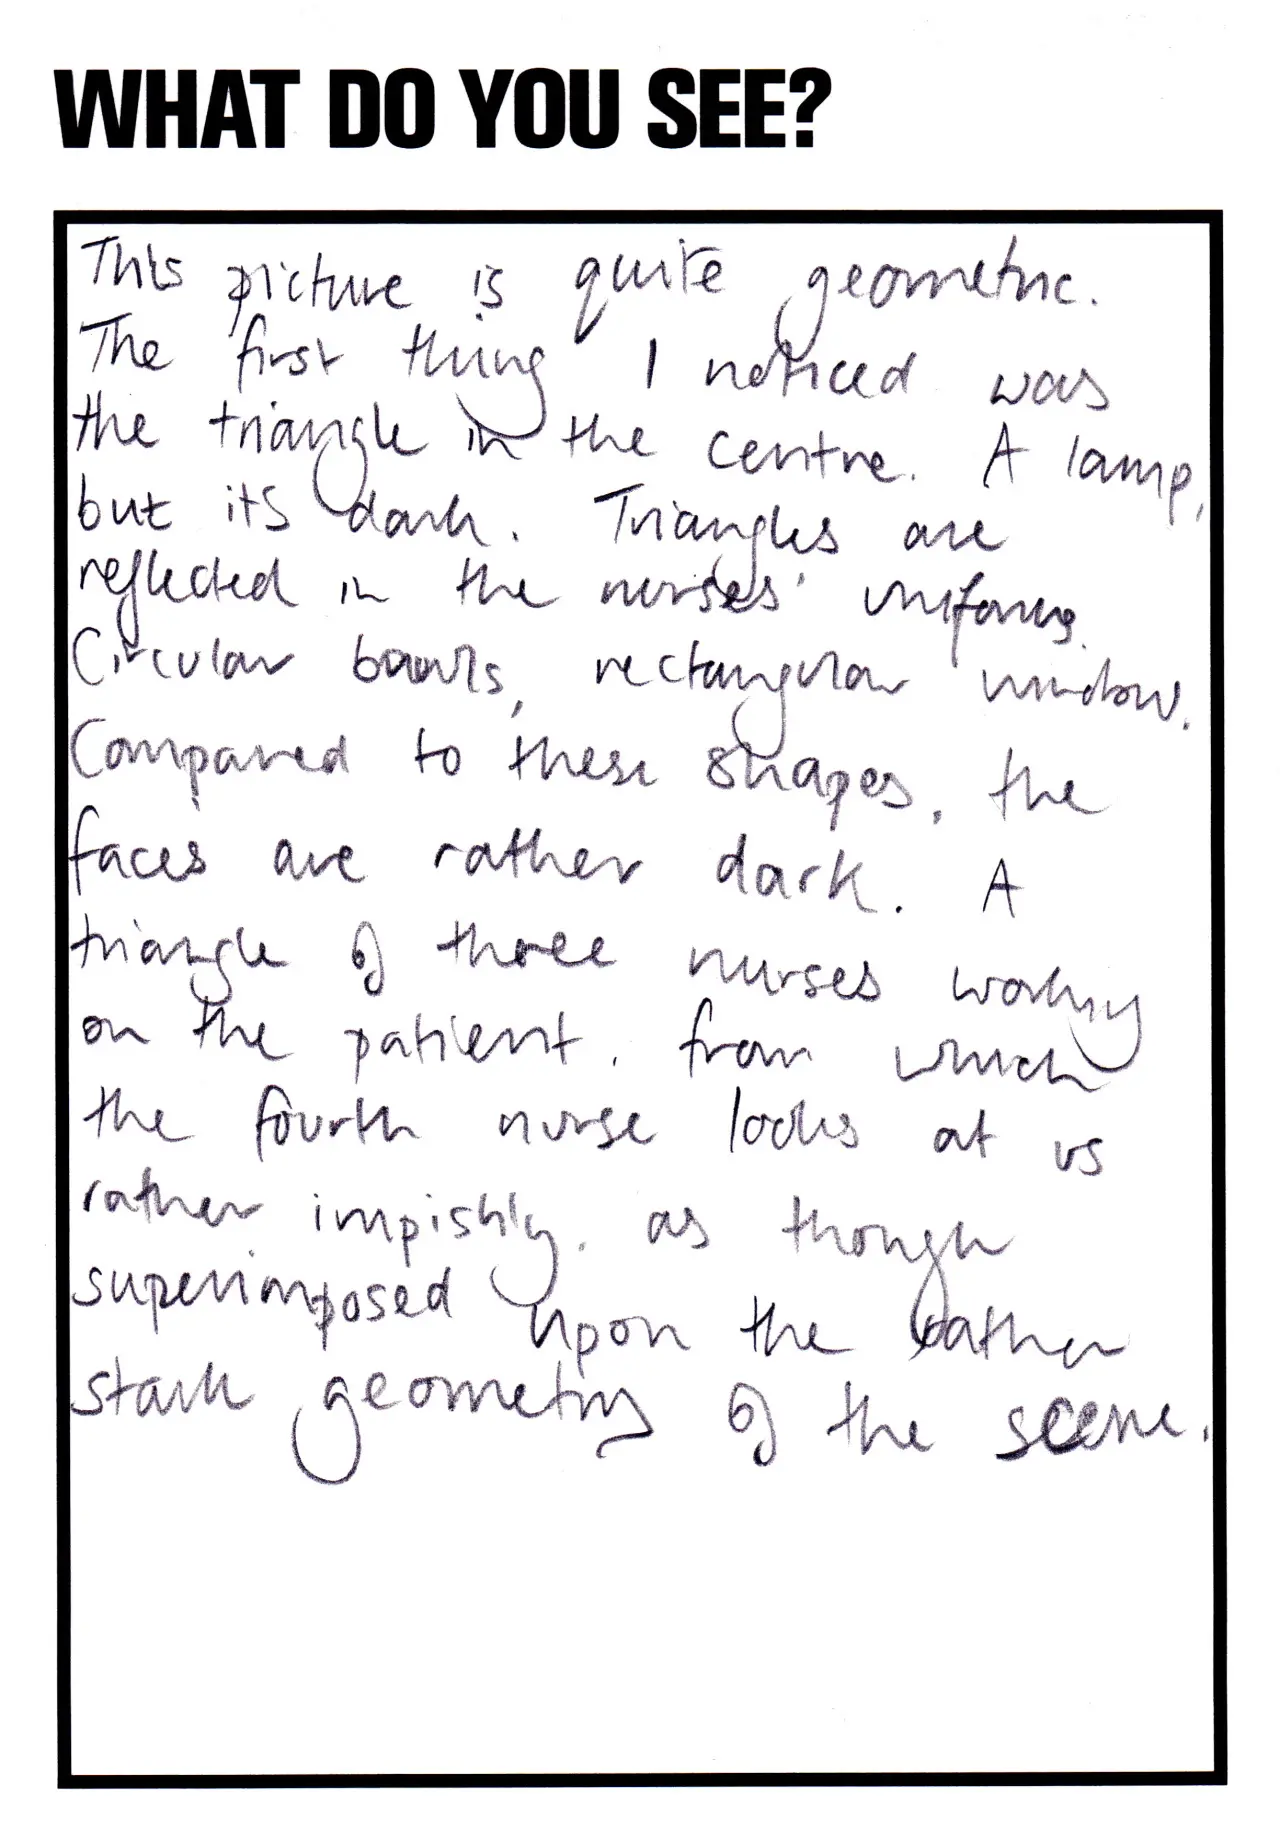 WHAT DO YOU SEE?
This picture is quite geometric.
The first thing I noticed was
the triangle in the centre. A lamp,
but its dark. Triangles are
reflected in the nurses' uniforms.
Circular bowls, rectangular window.
Compared to these shapes, the
faces are rather dark. A
triangle of three nurses working
on the patient, from which
the fourth nurse looks at us
rather impishly, as though
superimposed upon the rather
stark geometry of the scene.